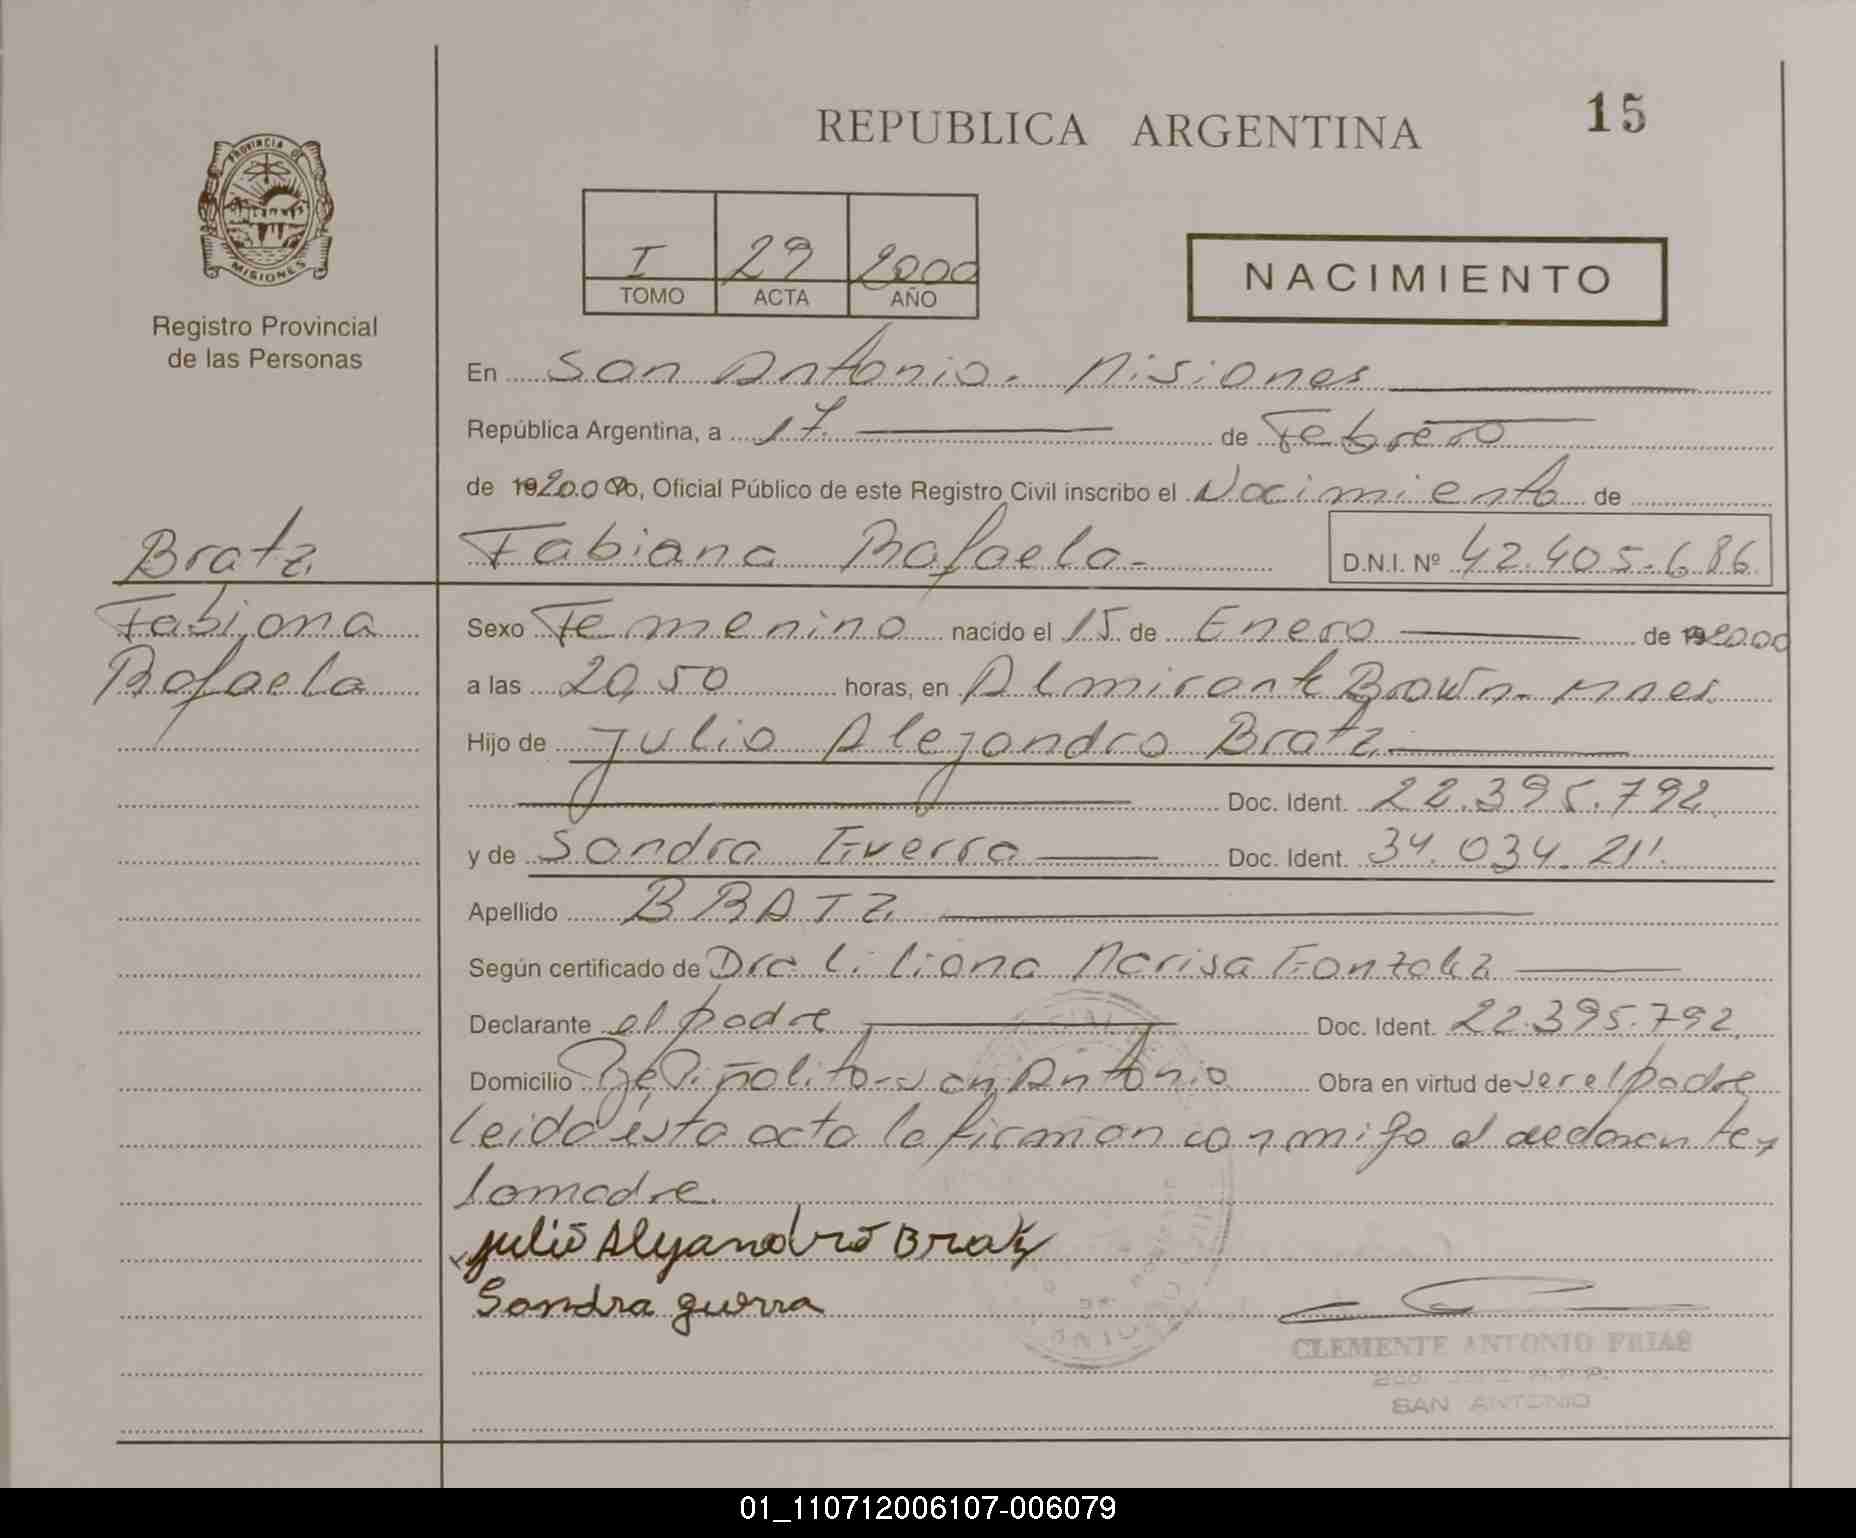 REPUBLICA ARGENTINA
15
PROVINCIA DE
MISIONES
Registro Provincial
de las Personas
I 29 2000
TOMO ACTA AÑO
NACIMIENTO
En San Antonio. Misiones
República Argentina, a 17 de Febrero
de 2000, Oficial Público de este Registro Civil inscribo el Nacimiento de
Bratz Fabiana Rafaela - D.N.I. Nº 42.405.686
Fabiana
Rafaela
Sexo Femenino nacido el 15 de Enero de 2000
a las 20,50 horas, en Almirante Brown - Mnes.
Hijo de Julio Alejandro Bratz
Doc. Ident. 22.395.792
y de Sandra Guerra Doc. Ident. 34.034.211
Apellido BRATZ
Según certificado de Dra Liliana Marisa Gonzalez
Declarante el padre Doc. Ident. 22.395.792
Domicilio Piñalito - San Antonio Obra en virtud de ser el padre
leida esta acta la firman conmigo el declarante y
la madre.
Julio Alejandro Bratz
Sandra guerra
CLEMENTE ANTONIO FRIAS
SAN ANTONIO
01_110712006107-006079